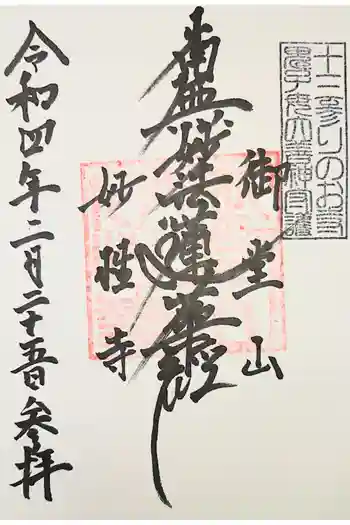 十二支りのお寺
御堂山
南無妙法蓮華経
妙性寺
令和四年二月二十五日参拝